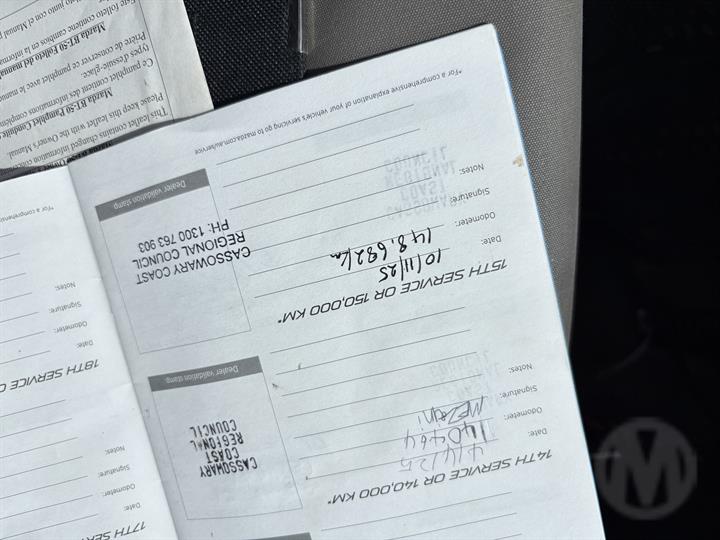 14TH SERVICE OR 140,000 KM*
Date:
4/4/25
Odometer:
140464
Signature:
Notes:
Dealer validation stamp
CASSOWARY
COAST
REGIONAL
COUNCIL
15TH SERVICE OR 150,000 KM*
Date:
10/11/25
Odometer:
148,682/km
Signature:
Notes:
Dealer validation stamp
CASSOWARY COAST
REGIONAL COUNCIL
PH: 1300 763 903
*For a comprehensive explanation of your vehicle's servicing go to mazda.com.au/service
17TH SERVICE
Date:
Odometer:
Signature:
Notes:
18TH SERVICE O
Date:
Odometer:
Signature:
Notes:
*For a comprehens
This leaflet contains changed information
Please keep this leaflet with the Owner's Manual
Mazda BT-50 Pamphlet
Ce pamphlet contient des informations
types d'essuie-glace.
Prière de conserver ce pamphlet avec le manue
Mazda BT-50 Folleto del manual
Este folleto contiene cambios en la informa
M